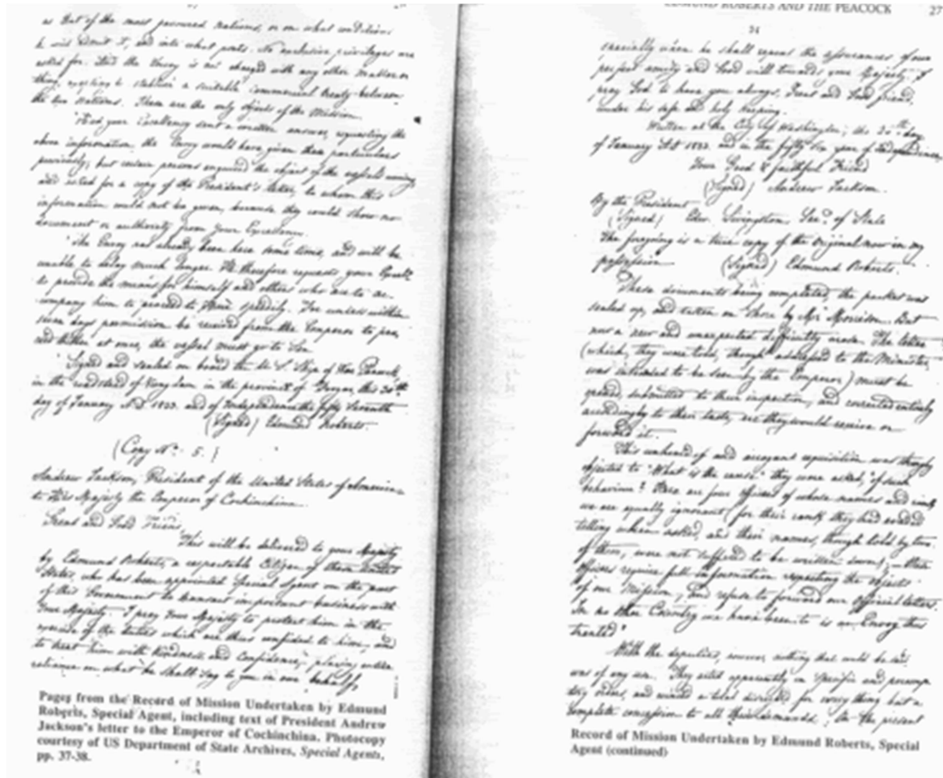 as that of the most favoured nations, or on what conditions
he will admit it, and into what ports. No exclusive privileges are
asked for. And the Envoy is not charged with any other matter or
thing, excepting to establish a suitable commercial treaty between
the two nations. These are the only objects of the Mission.
"Had your Excellency sent a written answer, requesting the
above information, the Envoy would have given these particulars
previously, but certain persons enquired the object of the vessel's coming
and asked for a copy of the President's letter, to whom this
information could not be given, because they could show no
document or authority from your Excellency.
"The Envoy has already been here some time, and will be
unable to delay much longer. He therefore requests your
to provide the means for himself and others who are to ac-
company him to proceed to Hué speedily. For unless within
seven days permission be received from the Emperor to pro
ceed thither at once, the vessel must go to Sea.
Signed and sealed on board the U. S. Ship of War Peacock,
in the roadstead of Vung lam in the province of this
day of January A.D. 1833. and of Independence the fifty seventh
(Signed) Edmund Roberts.
(Copy No. 5.)
Andrew Jackson, President of the United States of America
to His Majesty the Emperor of Cochinchina
Great and Good Friend,
This will be delivered to your Majesty
by Edmund Roberts, a respectable Citizen of these United
States, who has been appointed Special Agent on the part
of this Government to transact important business with
Your Majesty. I pray Your Majesty to protect him in the
exercise of the duties which are thus confided to him, and
to treat him with kindness and Confidence, placing entire
reliance on what he shall say to you in our behalf,
Pages from the Record of Mission Undertaken by Edmund
Roberts, Special Agent, including text of President Andrew
Jackson's letter to the Emperor of Cochinchina. Photocopy
courtesy of US Department of State Archives, Special Agents,
pp. 37-38.
EDMUND ROBERTS AND THE PEACOCK 27
especially when he shall repeat the assurances of our
perfect amity and Good will towards your Majesty. I
pray God to have you always, Great and Good friend,
under his safe and holy keeping.
Written at the City of Washington, the day
of January A.D. and in the fifty year of Independence,
Your Good & faithful Friend
(Signed) Andrew Jackson.
By the President
(Signed) Edw. Livingston, Sec. of State
The foregoing is a true copy of the original now in my
possession (Signed) Edmund Roberts.
These documents being completed, the packet was
sealed up, and taken on shore by Mr. Morrison. But
now a new and unexpected difficulty arose. The letter
(which, they were told, though addressed to the Minister,
was intended to be seen by the Emperor) must be
opened, submitted to their inspection, and corrected entirely
accordingly to their taste, ere they would receive or
forward it.
This unheard of and arrogant requisition was
objected to. "What is the cause" they were asked, "of such
behaviour? Here are four officers of whose names and rank
we are equally ignorant (for their rank, they had evaded
telling when asked, and their names, though told by two
of them, were not suffered to be written down); these
officers require full information respecting the objects
of our Mission, and refuse to forward our Official letters.
In no other Country we have been to is an Envoy thus
treated"
With the deputies, however, nothing that could be said
was of any use. They acted apparently on specific and peremp
tory orders, and a total disregard for every thing but a
complete concession to all their demands. In the present
Record of Mission Undertaken by Edmund Roberts, Special
Agent (continued)